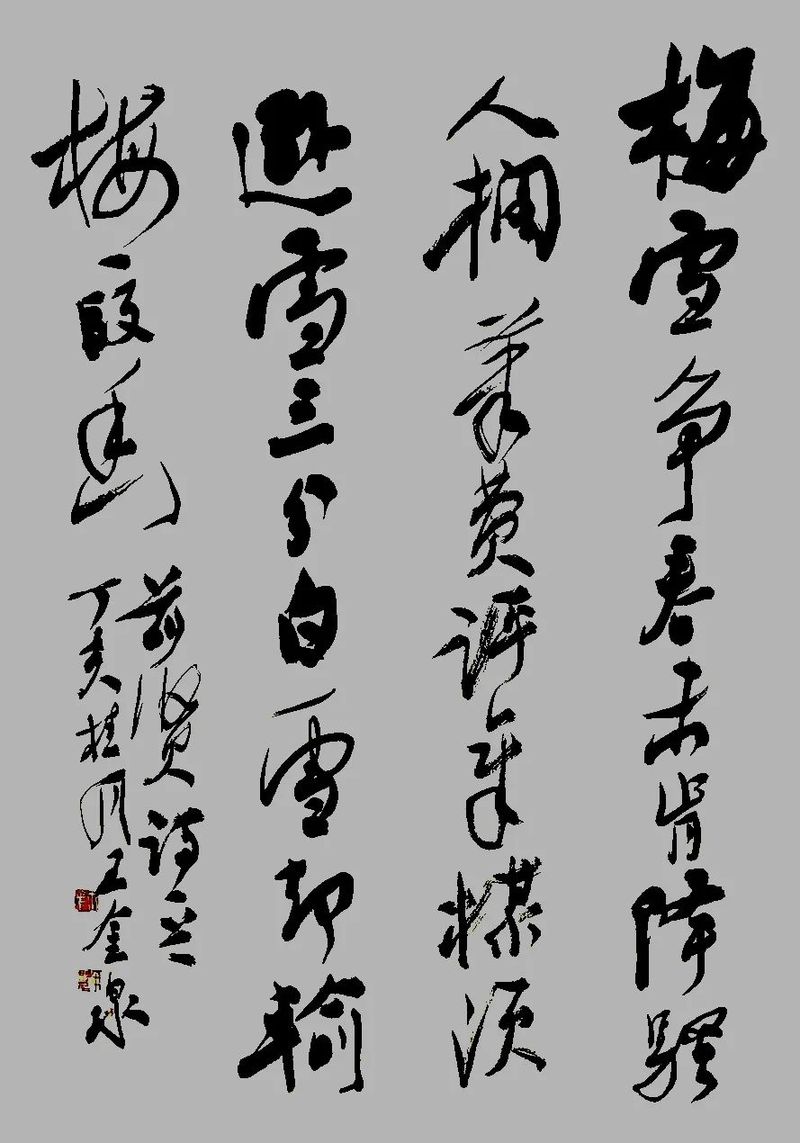 梅雪争春未肯降骚
人搁筆费评章楳须
遜雪三分白雪却输
梅一段香
前贤诗
丁亥桂月王金泉